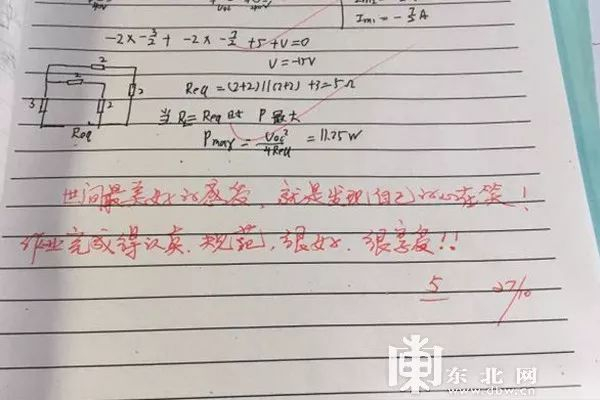 I_{m1} = -\frac{7}{2} A
-2×-\frac{3}{2} + -2×-\frac{7}{2} + 5 + V = 0
V = -15V
2
2
3
2
2
Req
Req = (2+2)||(2+2) + 3 = 5Ω
当 R_L = Req 时 P 最大
P_{max} = \frac{V_{oc}^2}{4Req} = 11.25W
世间最美好的感受,就是发现自己的心在笑!
作业完成得认真、规范,很好、很享受!!
5 27/10
东北网
www.dbw.cn